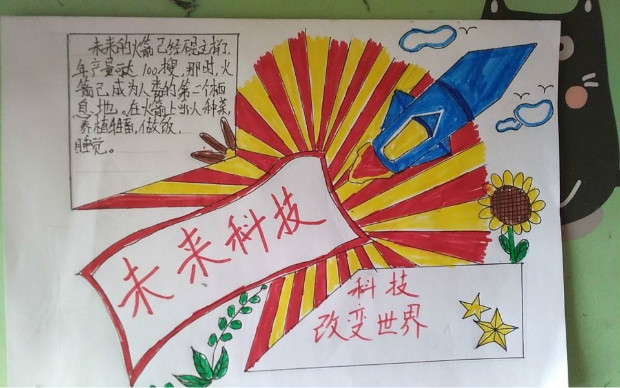 未来的火箭已经研究成了
年产量达100艘,那时,火
箭已成为人类的第二个栖
息地。在火箭上可以种菜,
养植牲畜,做饭,
睡觉。
未来科技
科技
改变世界